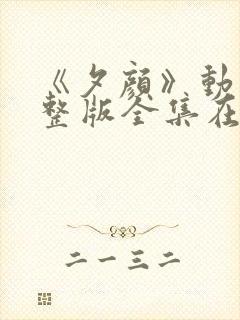 《夕颜》動
整版全集在
二一三二